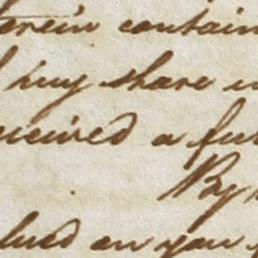 erein contain
my share
ceived a fu
By
lued on you